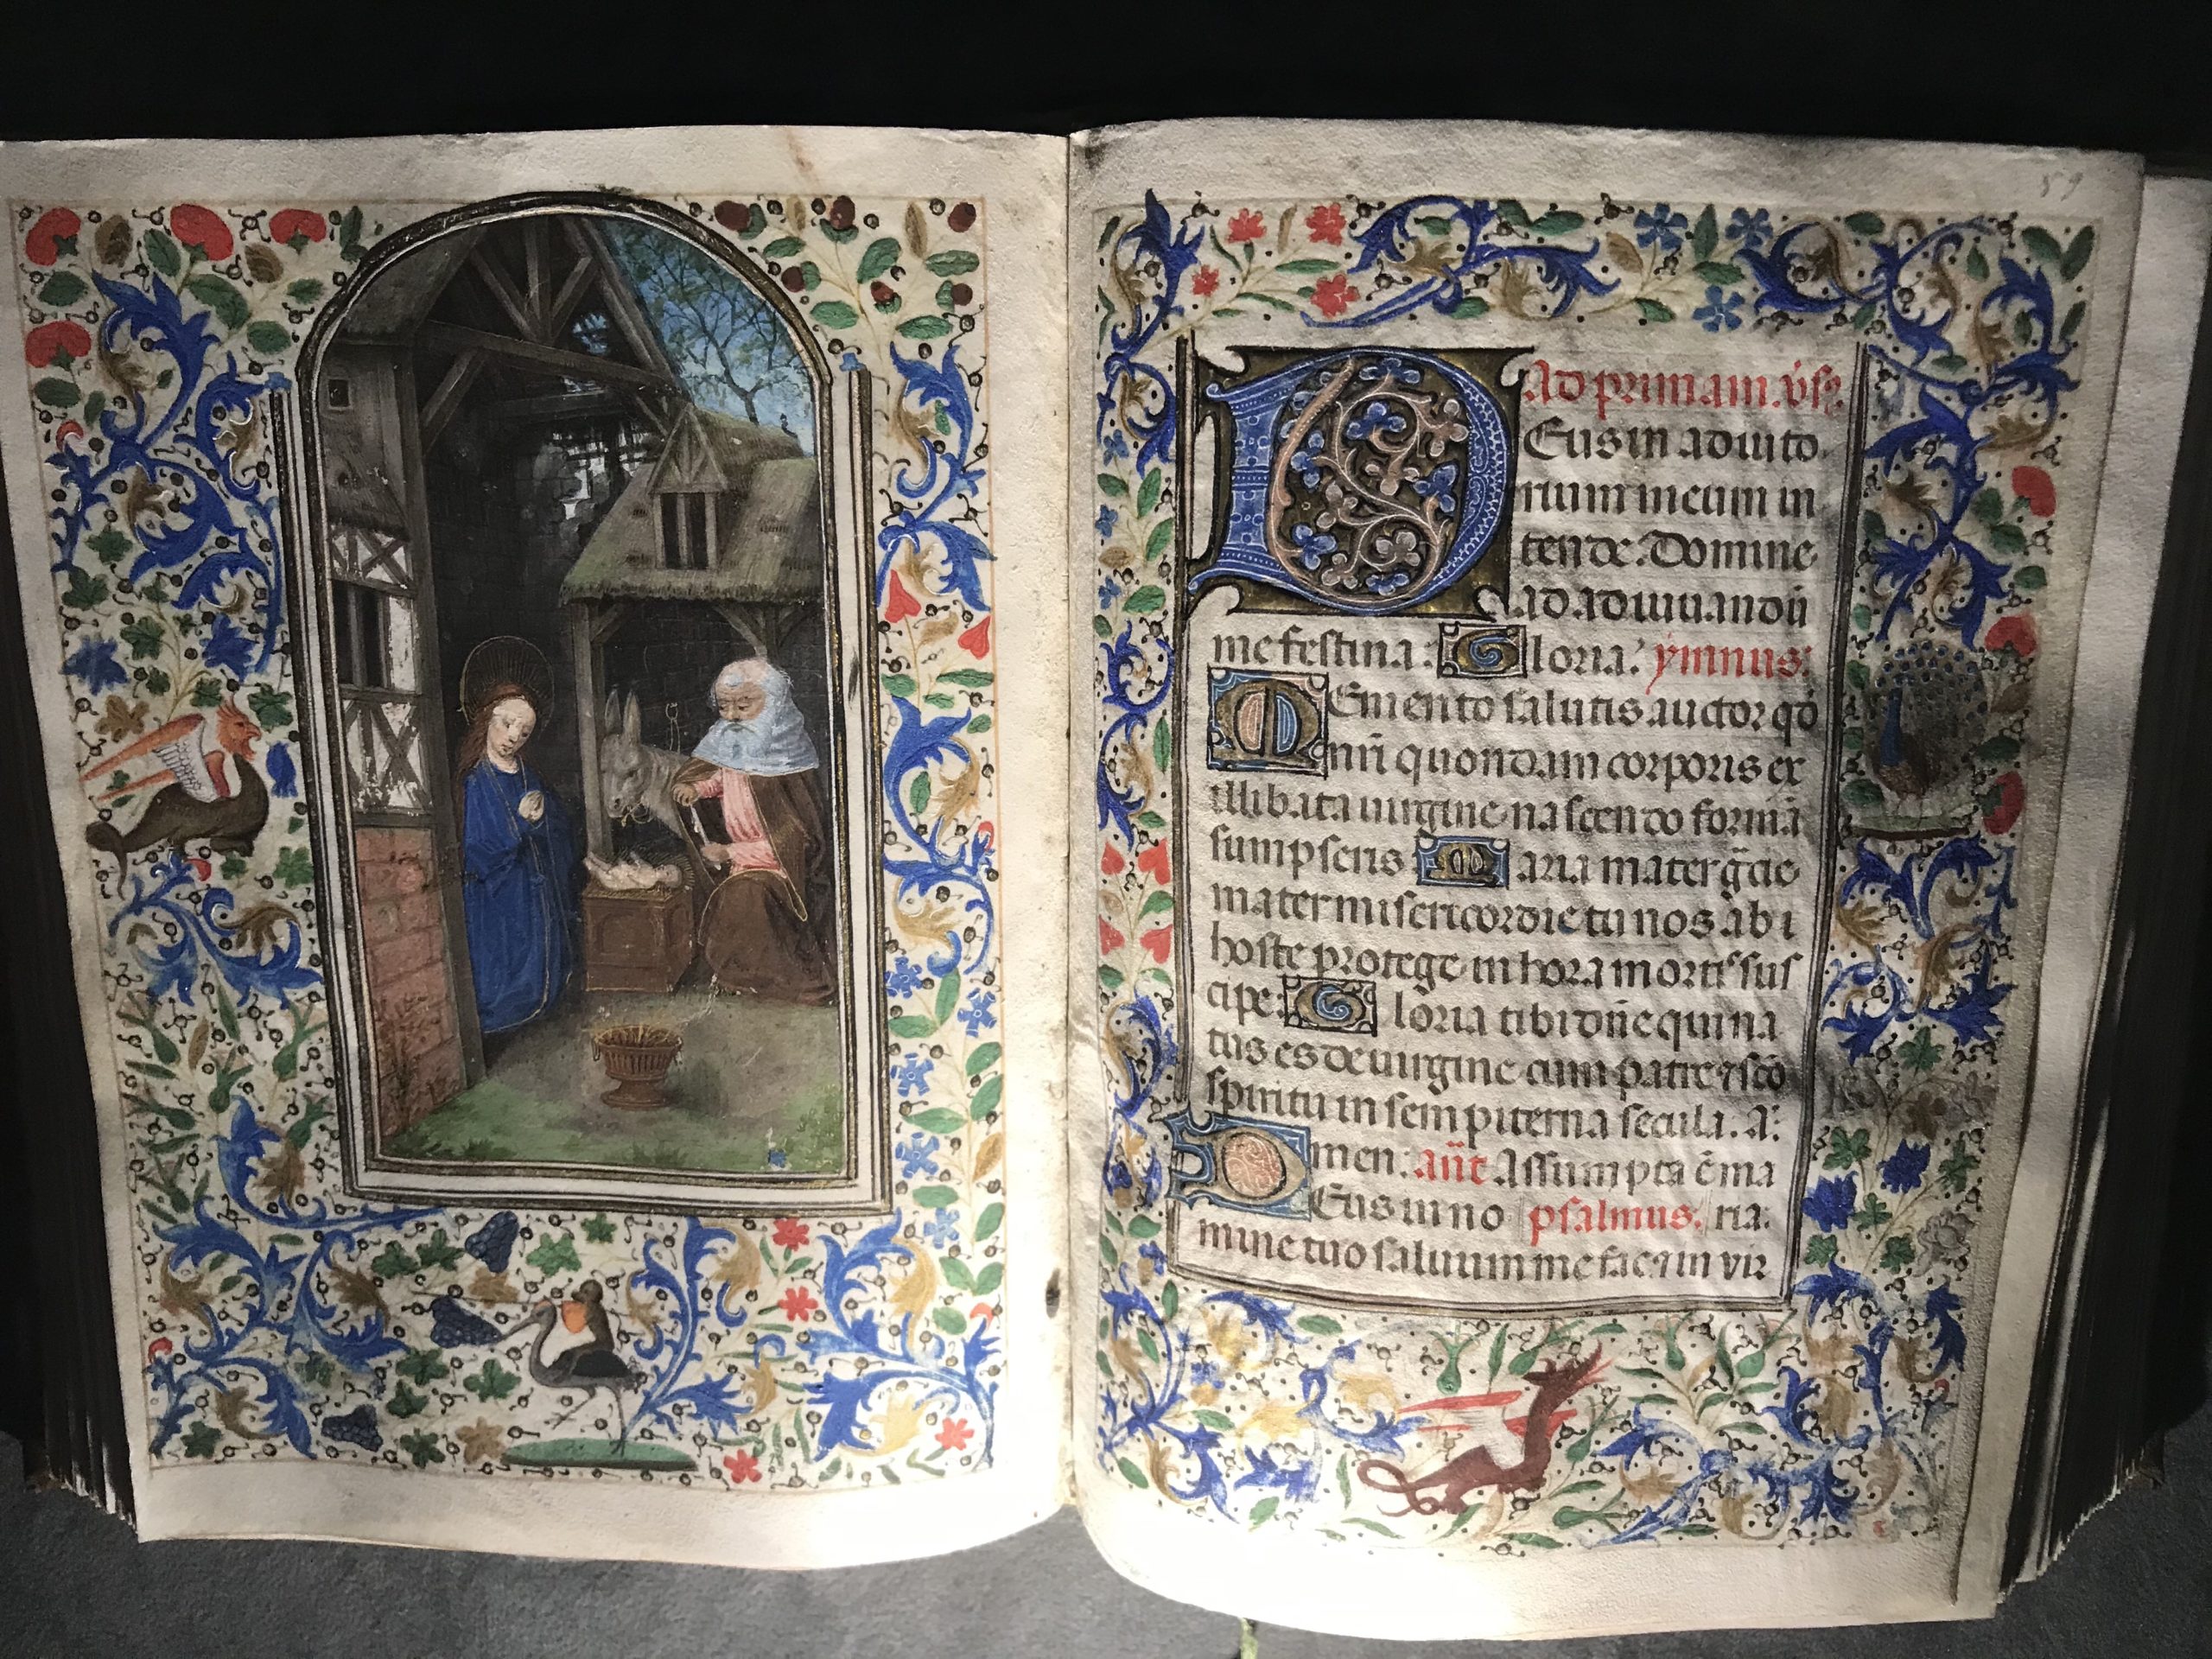 59
Ad primam. v̄s.
Deus in adiuto
rium meum in
tende. Domine
ad adiuuandū
me festina. Gloria. ymnus.
Memento salutis auctor qd̄
nr̄i quondam corporis ex
illibata uirgine nascendo formā
sumpseris Maria mater gr̄acie
mater misericordie tu nos ab i
hoste protege in hora mortis sus
cipe. Gloria tibi dn̄e qui na
tus es de uirgine cum patre ⁊ sc̄o
spiritu in sempiterna secula. A
men. an̄t Assumpta ē ma
Deus in no psalmus. ria.
mine tuo saluum me fac ⁊ in vir